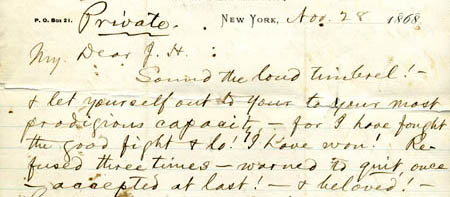 P. O. Box 21. Private. New York, Nov. 28 1868
My Dear J. H.
Sound the loud timbrel! —
& let yourself out to your to your most
prodigious capacity, — for I have fought
the good fight & lo! I have won! Re-
fused three times — warned to quit, once
— accepted at last! — & beloved! —